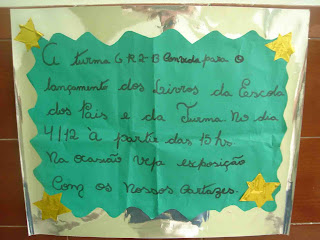 A turma GR2-B Convida para o
lançamento dos Livros da Escola
dos Pais e da Turma No dia
4/12 à partir das 15hs.
Na ocasião veja exposição
Com os Nossos Cartazes.